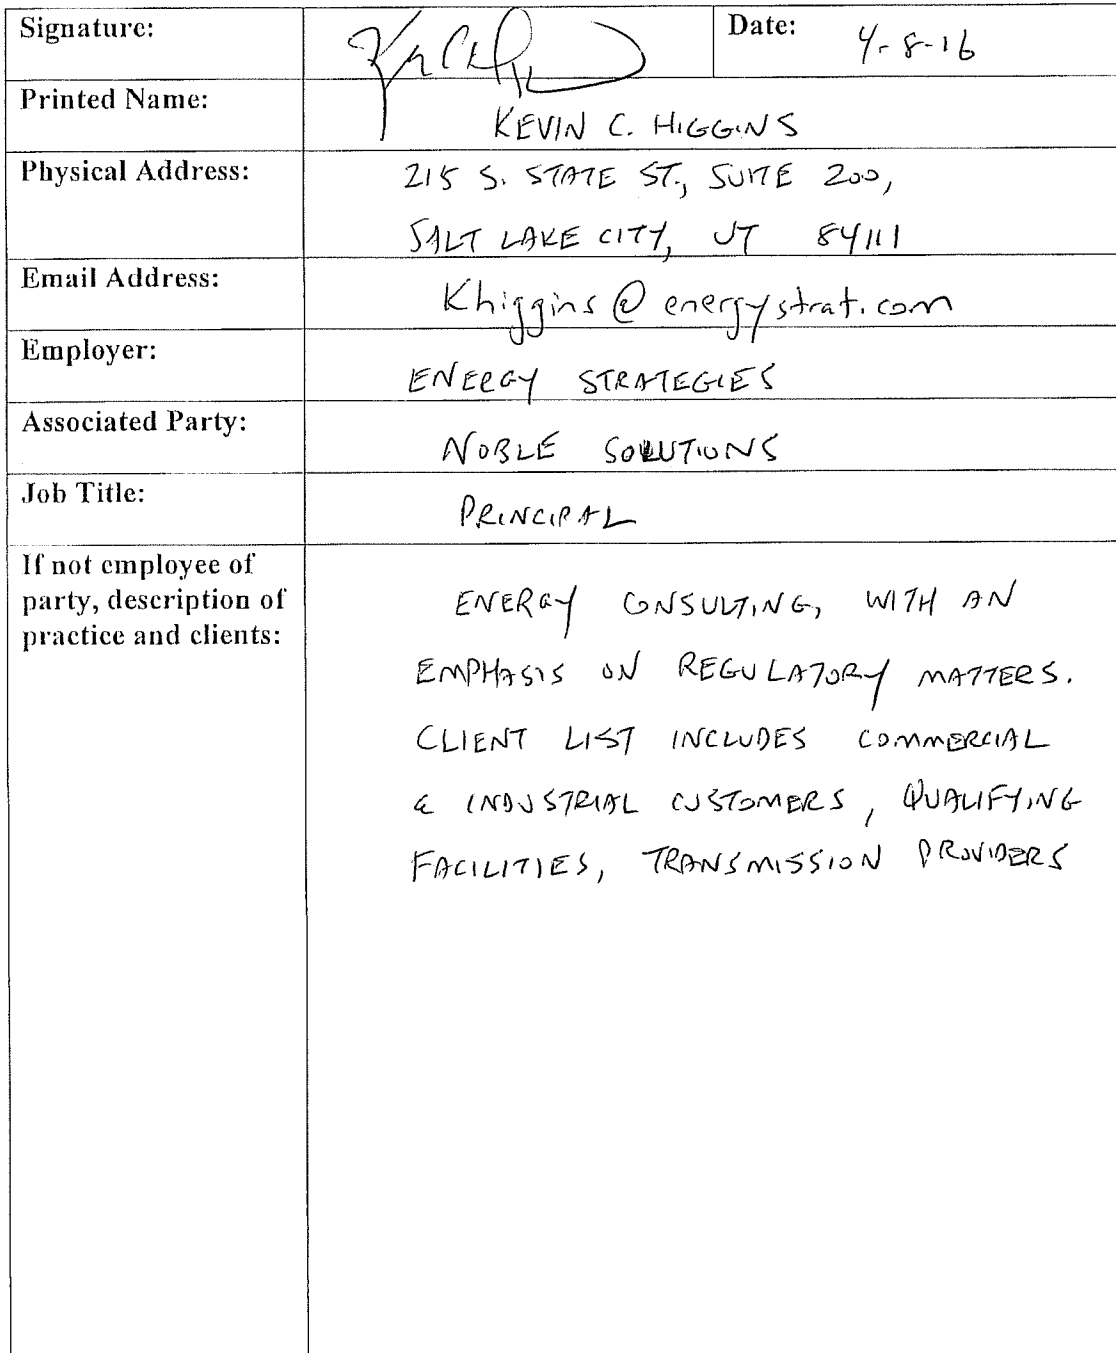 Signature: Date: 4-8-16
Printed Name: KEVIN C. HIGGINS
Physical Address: 215 S. STATE ST., SUITE 200,
SALT LAKE CITY, UT 84111
Email Address: Khiggins@energystrat.com
Employer: ENERGY STRATEGIES
Associated Party: NOBLE SOLUTIONS
Job Title: PRINCIPAL
If not employee of
party, description of
practice and clients:
ENERGY CONSULTING, WITH AN
EMPHASIS ON REGULATORY MATTERS.
CLIENT LIST INCLUDES COMMERCIAL
& INDUSTRIAL CUSTOMERS, QUALIFYING
FACILITIES, TRANSMISSION PROVIDERS